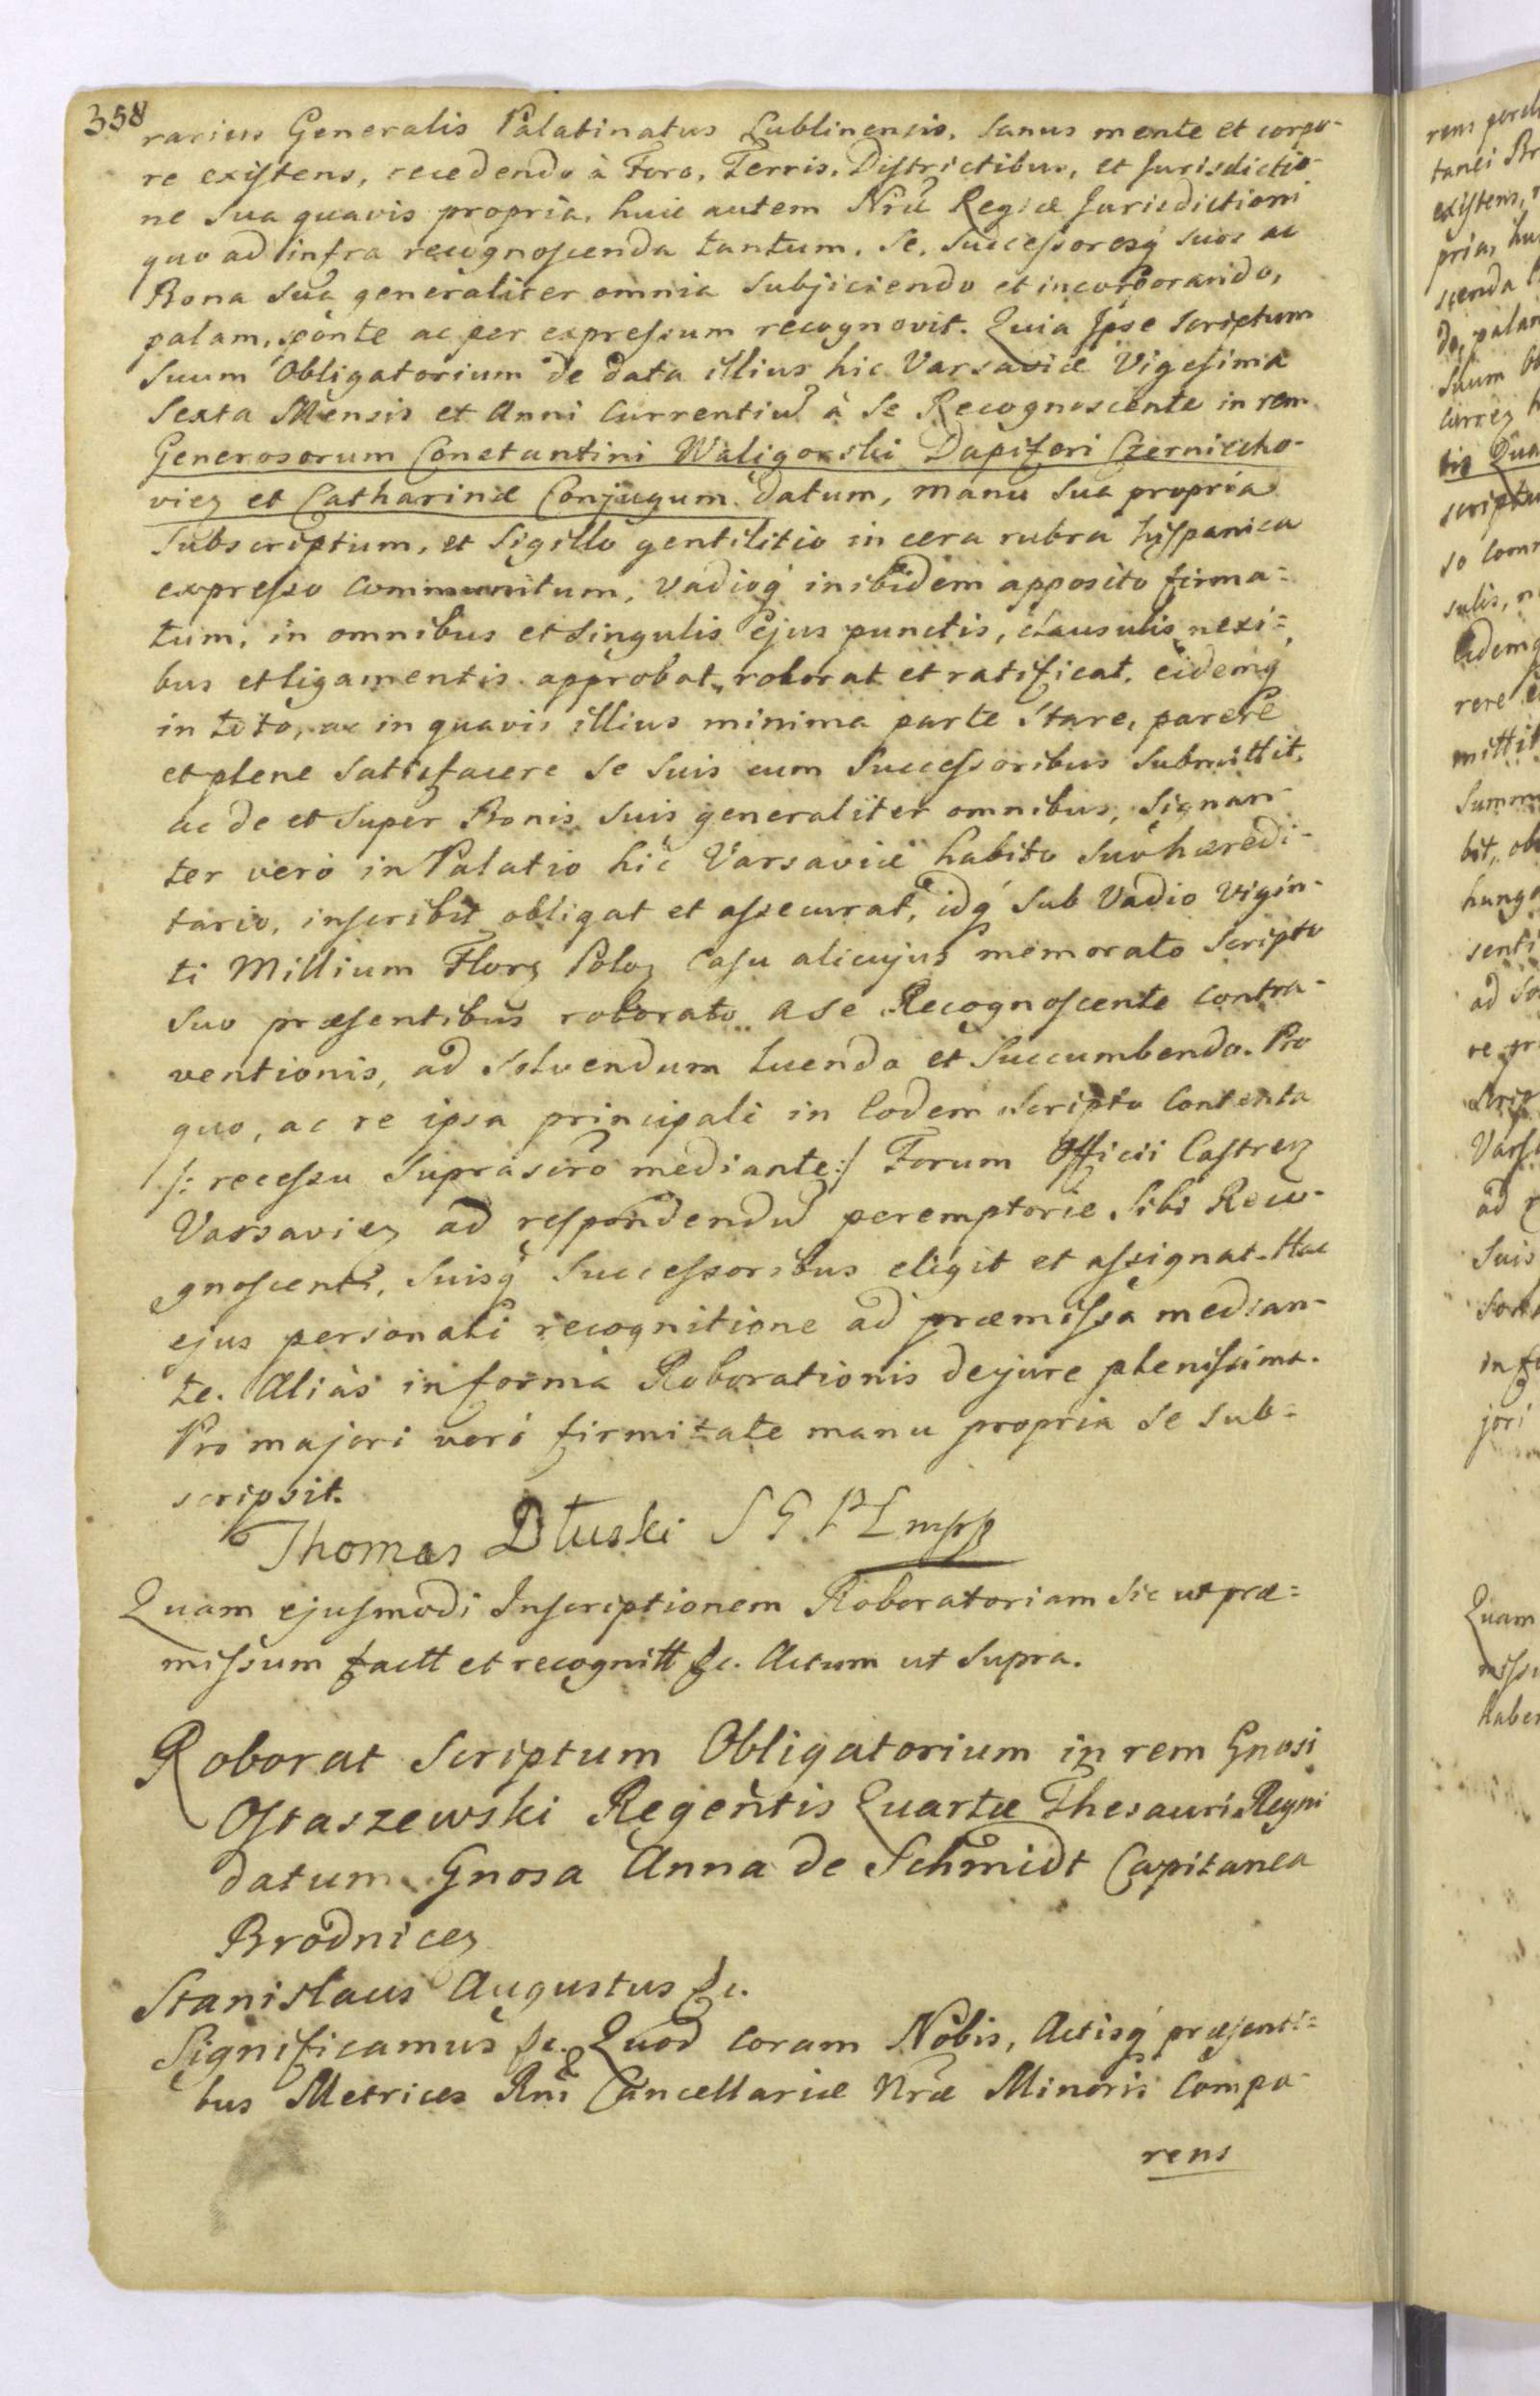 358
rarius Generalis Palatinatus Lublinensis, Sanus mente et corpo-
re existens, recedendo à Foro, Terris, Districtibus, et Jurisdictio-
ne Sua quavis propria, huic autem Nrae Regiae Jurisdictioni
quo ad infra recognoscenda tantum, Se, Successoresq́ suos ac
Bona Sua generaliter omnia Subjiciendo et incorporando,
palam, sponte ac per expressum recognovit. Quia Ipse Scriptum
Suum Obligatorium de data illius hic Varsaviae Vigesima
Sexta Mensis et Anni Currentiu à Se Recognoscente in rem
Generosorum Constantini Waligorski Dapiferi Czerniecho-
viez et Catharinae Conjugum datum, manu Sua propria
Subscriptum, et Sigillo gentilitio in cera rubra hyspanica
expresso Communitum, Vadioq́ inibidem apposito firma=
tum, in omnibus et Singulis Ejus punctis, clausulis nexi=
bus et ligamentis approbat, roborat et ratificat, eidemq́
in toto, ac in quavis illius minima parte Stare, parere
et plene Satisfacere Se Suis cum Successoribus Submittit,
ac de et Super Bonis Suis generaliter omnibus, Signan-
ter vero in Palatio hic Varsaviae habito Suo haeredi-
tario, inscribit obligat et assecurat, idq́ Sub Vadio Vigin-
ti Millium Florz Poloz Casu alicujus memorato Scripto
Suo praesentibus roborato a Se Recognoscente Contra-
ventionis, ad Solvendum luenda et Succumbendo. Pro
quo, ac re ipsa principali in Eodem Scripto Contenta
/: recessu Suprascro mediante :/ Forum Officii Castrez
Varsaviez ad respondendu peremptorie Sibi Reco-
gnoscenti, Suisq́ Successoribus eligit et assignat. Hac
ejus personali recognitione ad praemissa median-
te. Aliàs in forma Roborationis de jure plenissima.
Pro majori verò firmitate manu propria Se Sub=
scripsit.
Thomas Dłuski S G P L mpp
Quam ejusmodi Inscriptionem Roboratoriam Sic ut prae=
missum factt et recognitt &c. Actum ut Supra.
Roborat Scriptum Obligatorium in rem Gnosi
Ostaszewski Regentis Quartae Thesauri Regni
datum Gnosa Anna de Schmidt Capitanea
Brodnicez
Stanislaus Augustus &c.
Significamus &c. Quod Coram Nobis, Actisq́ praesenti=
bus Metrices Rni Cancellariae Nrae Minoris Compa-
rens